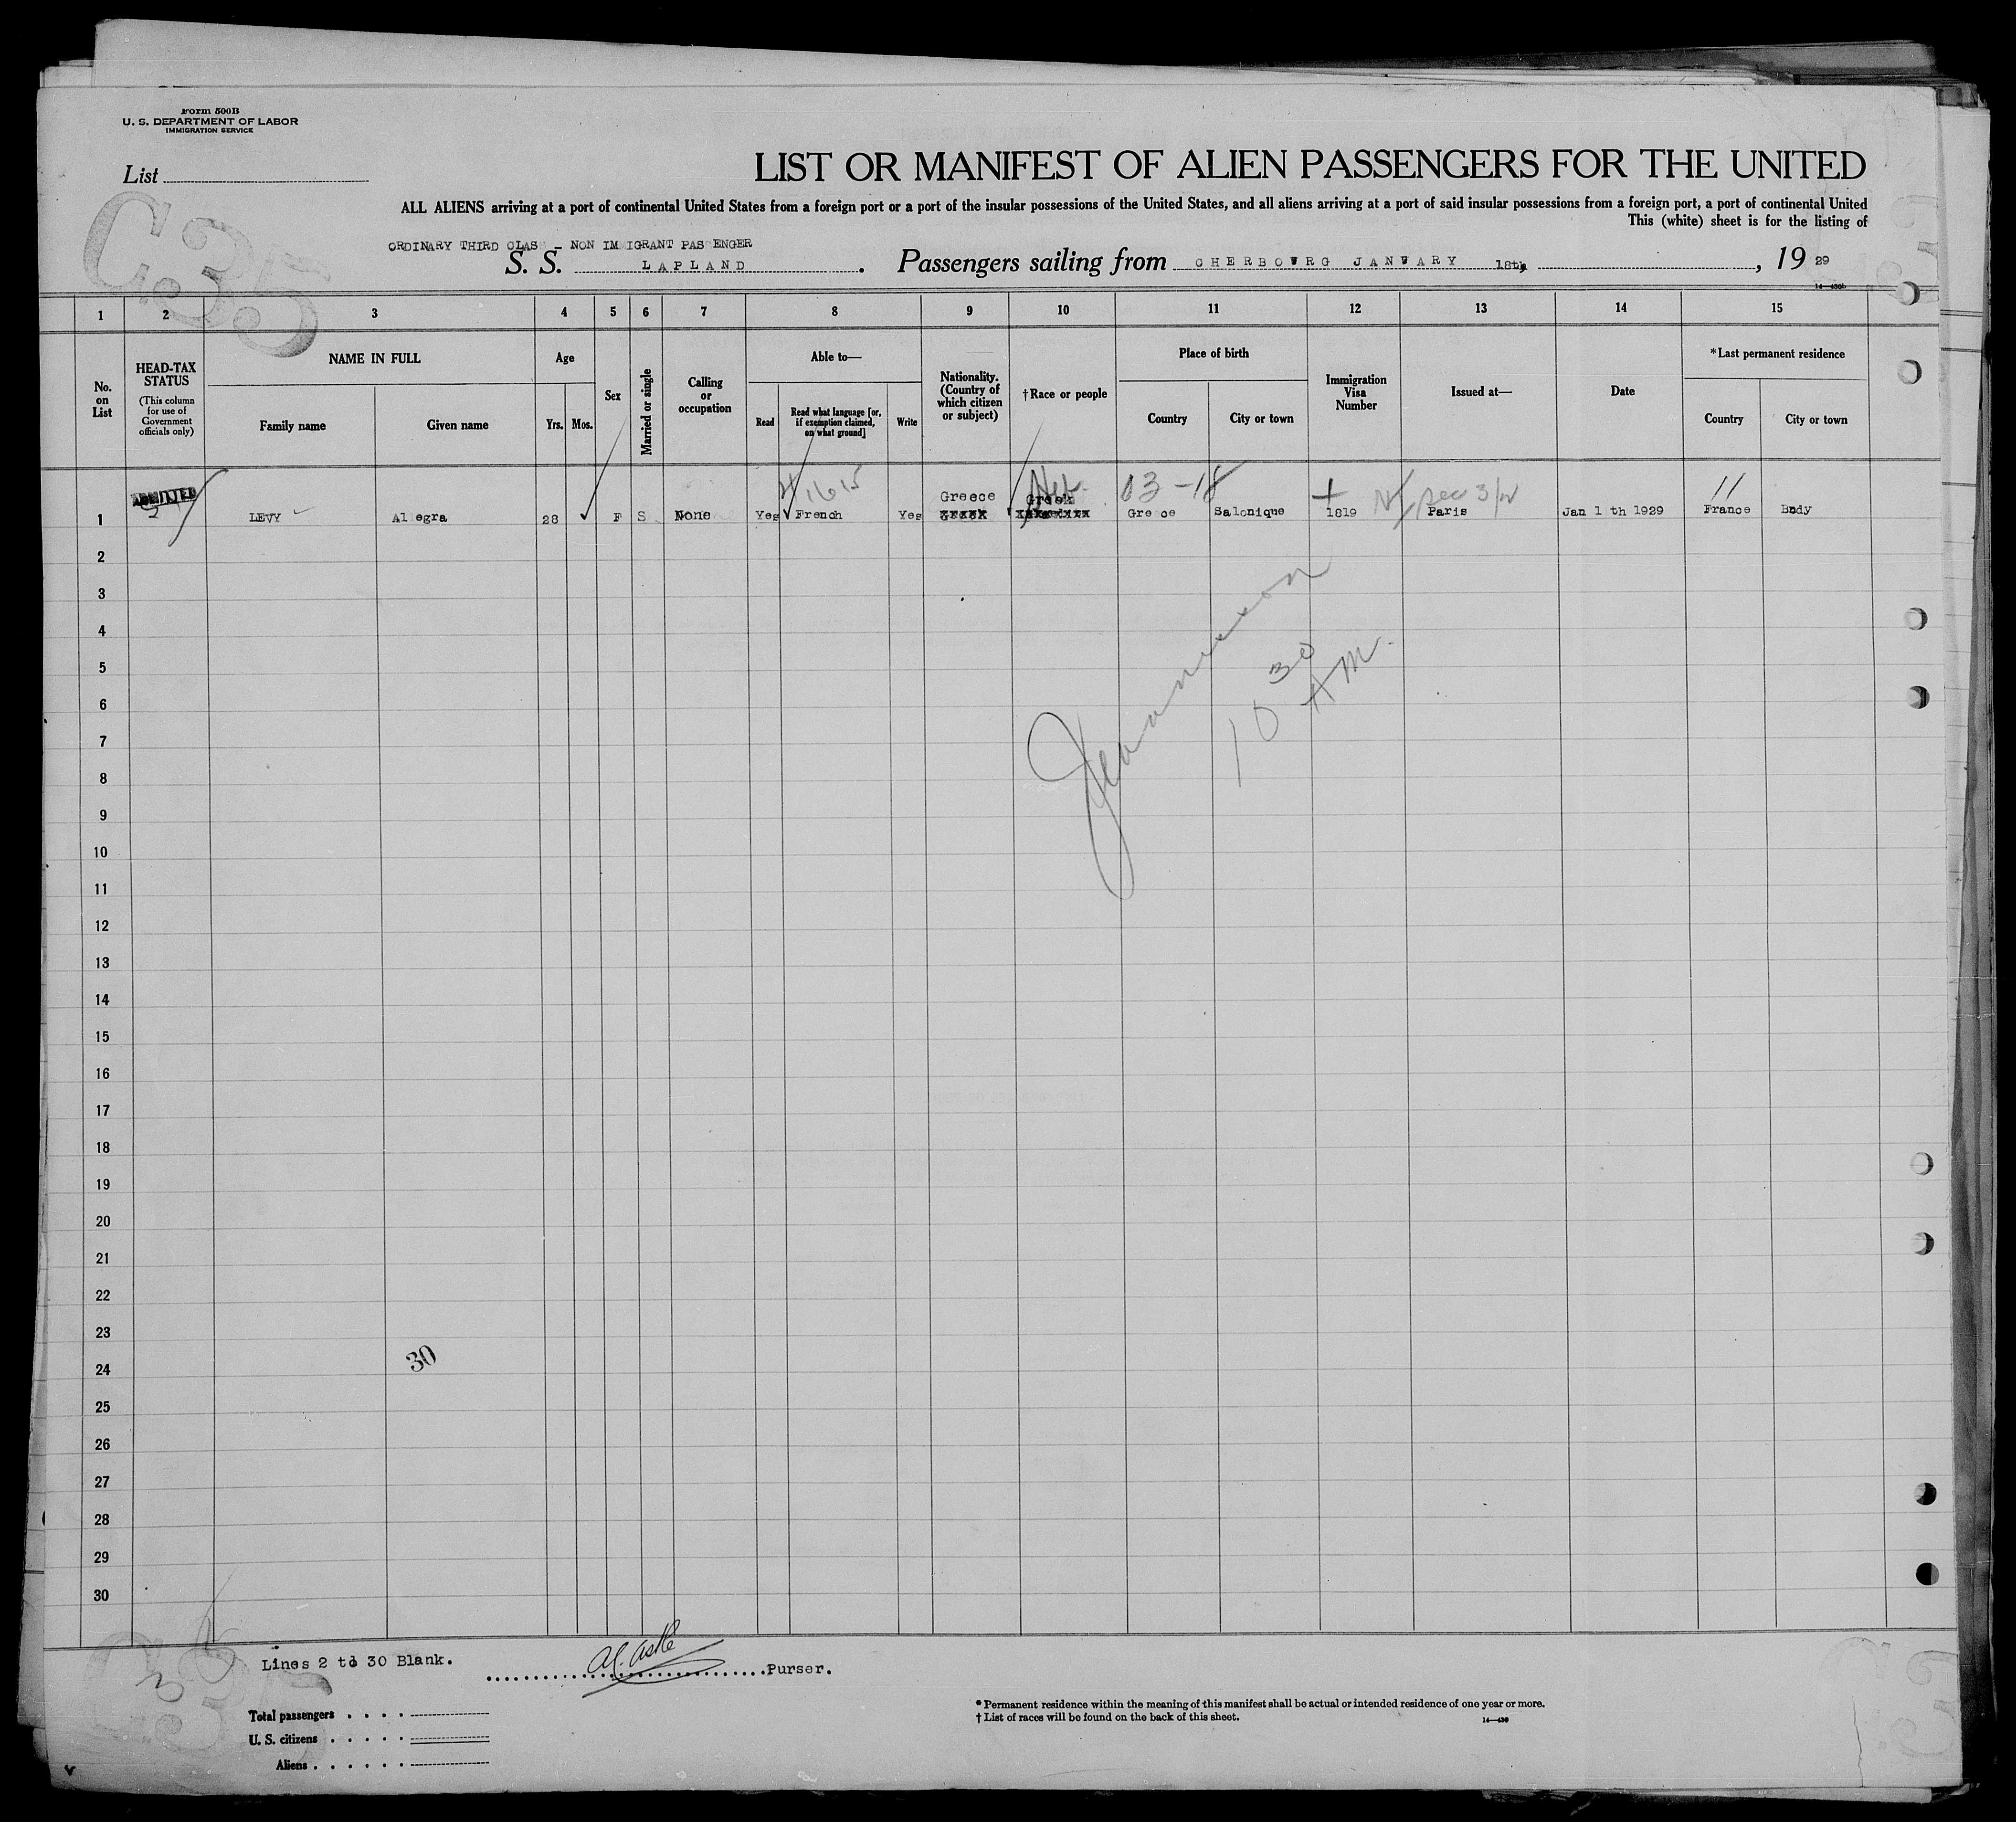 Form 500B
U. S. DEPARTMENT OF LABOR
IMMIGRATION SERVICE
List
C35
LIST OR MANIFEST OF ALIEN PASSENGERS FOR THE UNITED
ALL ALIENS arriving at a port of continental United States from a foreign port or a port of the insular possessions of the United States, and all aliens arriving at a port of said insular possessions from a foreign port, a port of continental United
This (white) sheet is for the listing of
ORDINARY THIRD CLAS - NON IM IGRANT PAS ENGER
S. S. LAPLAND. Passengers sailing from CHERBOURG JANUARY 18th, 19 29
14—430b
1 2 3 4 5 6 7 8 9 10 11 12 13 14 15
No. on List
HEAD-TAX STATUS
(This column for use of Government officials only)
NAME IN FULL
Family name
Given name
Age
Yrs.
Mos.
Sex
Married or single
Calling or occupation
Able to—
Read
Read what language [or, if exemption claimed, on what ground]
Write
Nationality. (Country of which citizen or subject)
†Race or people
Place of birth
Country
City or town
Immigration Visa Number
Issued at—
Date
*Last permanent residence
Country
City or town
ADMITTED
13 – 18
11
Greece
Greek
1 LEVY Al egra 28 F S None Yes French Yes Gre ce Salonique 1819 Paris Jan 1 th 1929 France Bndy
2
3
4
5
6
7
8
9
10
11
12
13
14
15
16
17
18
19
20
21
22
23
24
25
26
27
28
29
30
10 30 AM.
30
Lines 2 to 30 Blank.
Purser.
Total passengers
U. S. citizens
Aliens
* Permanent residence within the meaning of this manifest shall be actual or intended residence of one year or more.
† List of races will be found on the back of this sheet.
14—430